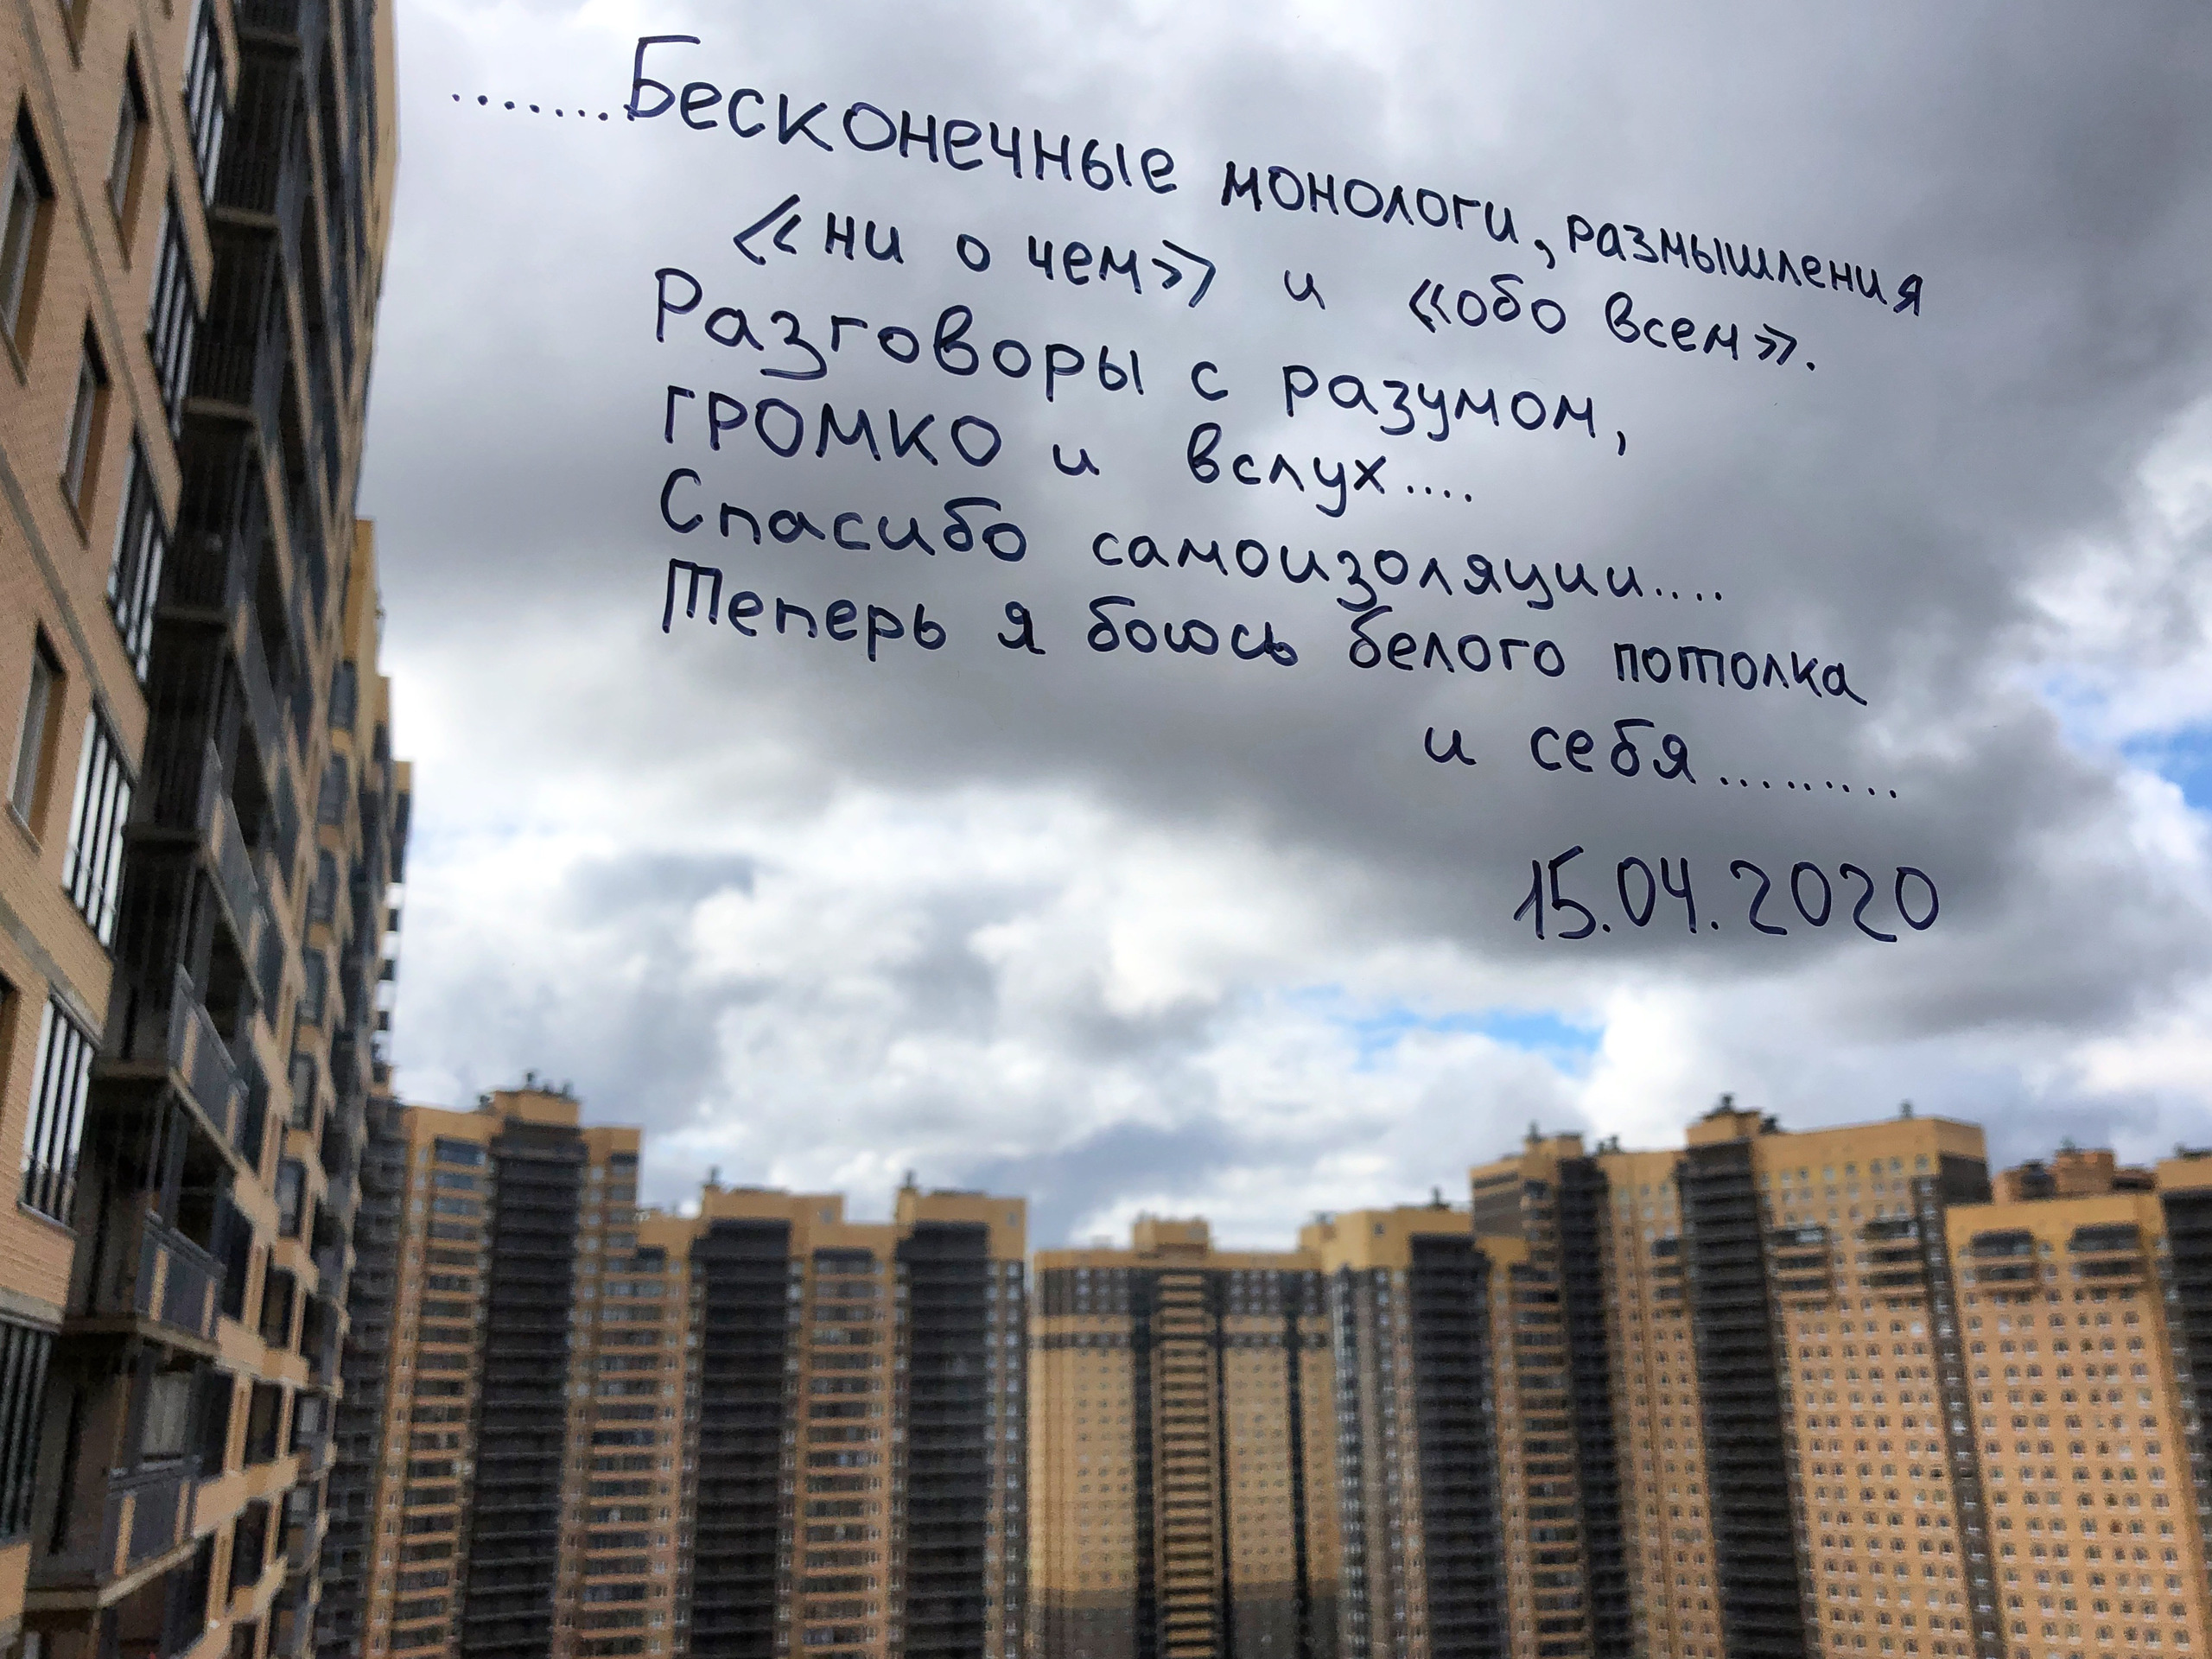 .......Бесконечные монологи, размышления
«ни о чем» и «обо всем».
Разговоры с разумом,
громко и вслух....
Спасибо самоизоляции....
Теперь я боюсь белого потолка
и себя.........
15.04.2020